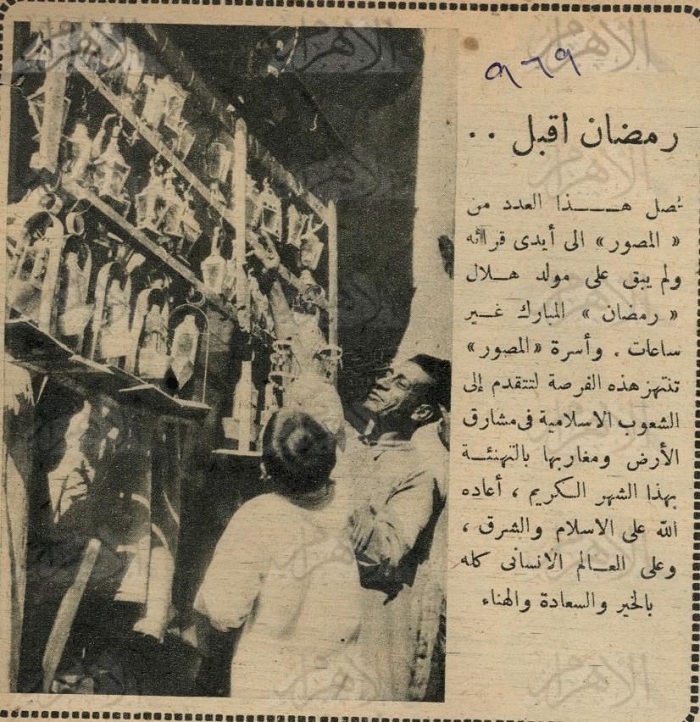 ٩٦٩
رمضان اقبل ..
تصل هـــذا العدد من
« المصور » الى أيدى قرائه
ولم يبق على مولد هـلال
« رمضان » المبارك غـير
ساعات . وأسرة «المصور»
تنتهز هذه الفرصة لتتقدم إلى
الشعوب الاسلامية فى مشارق
الأرض ومغاربها بالتهنئــة
بهذا الشهر الـكريم ، أعاده
الله على الاسلام والشرق ،
وعلى العــالم الانسانى كله
بالخير والسعادة والهناء
الاهرام